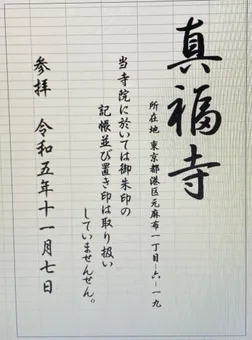 真福寺
所在地 東京都港区元麻布一丁目ー六ー一九
当寺院に於いては御朱印の
記帳並び置き印は取り扱い
していませんせん。
参拝 令和五年十一月七日